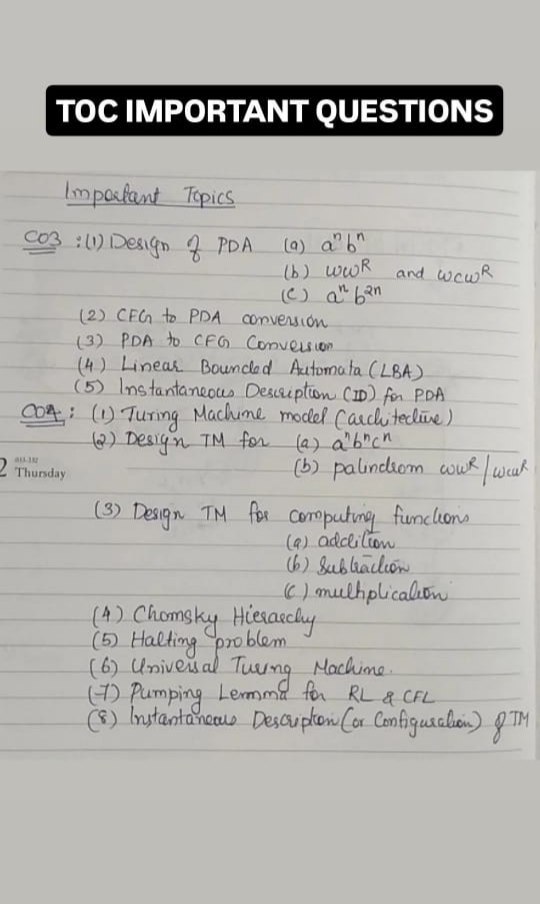 TOC IMPORTANT QUESTIONS
Important Topics
CO3 : (1) Design of PDA (a) aⁿbⁿ
(b) wwᴿ and wcwᴿ
(c) aⁿ b²ⁿ
(2) CFG to PDA conversion
(3) PDA to CFG Conversion
(4) Linear Bounded Automata (LBA)
(5) Instantaneous Description (ID) for PDA
CO4 : (1) Turing Machine model (architecture)
(2) Design TM for (a) aⁿbⁿcⁿ
2 Thursday
(b) palindrom wwᴿ/wcwᴿ
(3) Design TM for computing functions
(a) addition
(b) Subtraction
(c) multiplication
(4) Chomsky Hierarchy
(5) Halting problem
(6) Universal Turing Machine.
(7) Pumping Lemma for RL & CFL
(8) Instantaneous Description (or Configuration) of TM